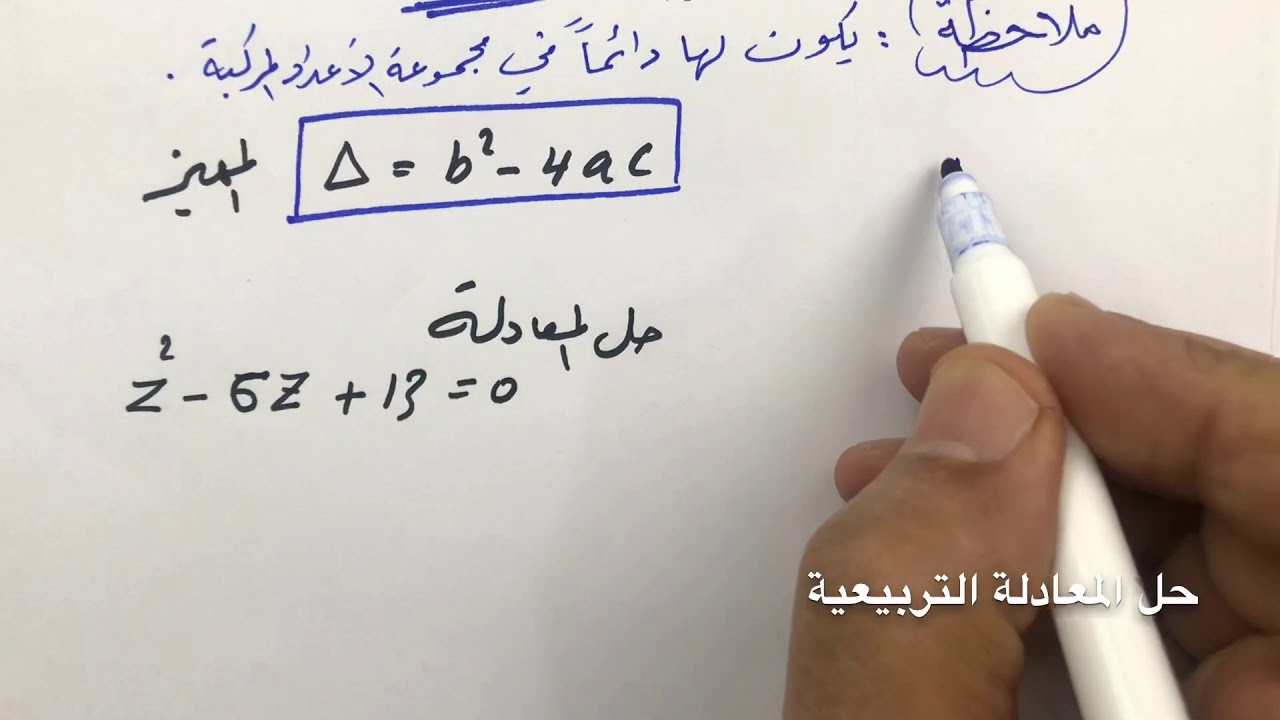 ملاحظة : يكون لها دائماً في مجموعة الأعداد المركبة .
المميز Δ = b² - 4ac
حل المعادلة
z² - 6z + 13 = 0
حل المعادلة التربيعية